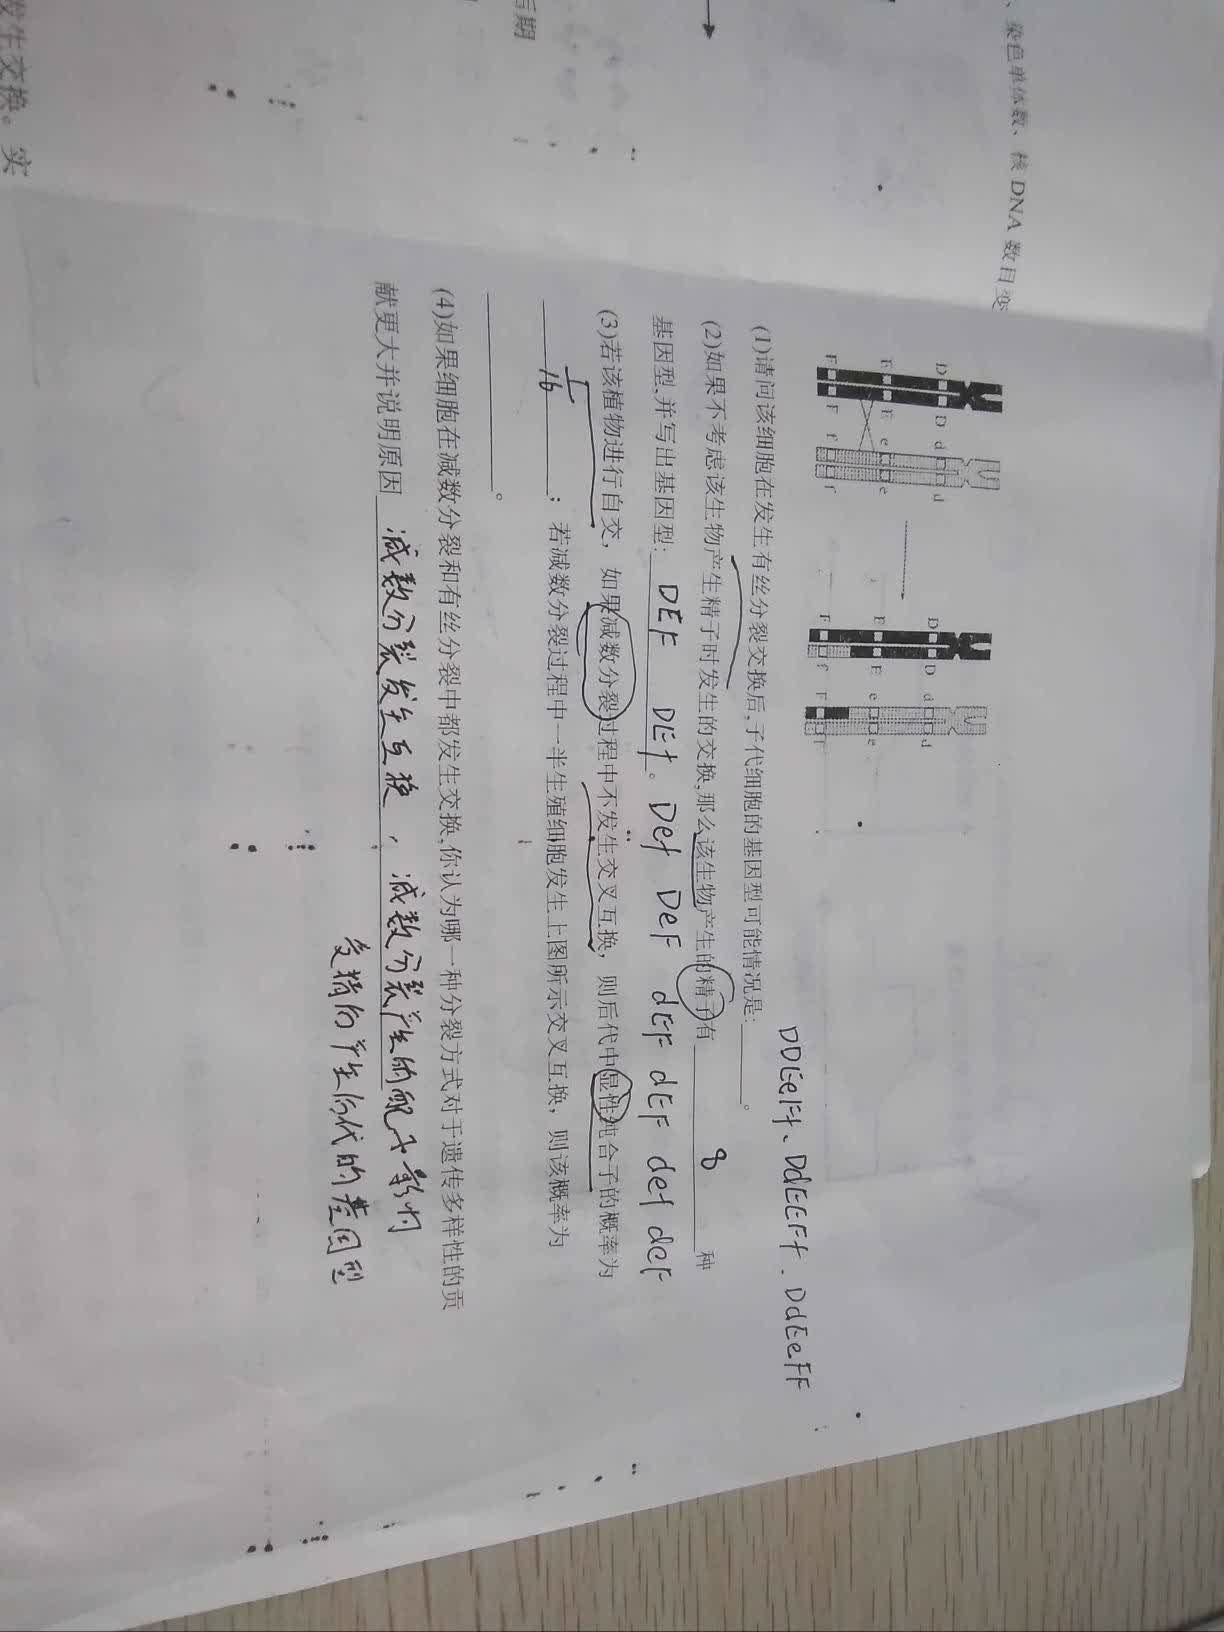 发生交换。实
后期
、染色单体数、核DNA数目变
D D d d
E E e e
F F f f
D D d d
E E e e
F f F f
(1)请问该细胞在发生有丝分裂交换后,子代细胞的基因型可能情况是:______。
DDEeFf、DdEEFf、DdEeFF
(2)如果不考虑该生物产生精子时发生的交换,那么该生物产生的精子有 8 种
基因型,并写出基因型: DEF DEf。Def DeF dEF dEf def deF
(3)若该植物进行自交，如果减数分裂过程中不发生交叉互换，则后代中显性纯合子的概率为
1/16 ；若减数分裂过程中一半生殖细胞发生上图所示交叉互换，则该概率为
______。
(4)如果细胞在减数分裂和有丝分裂中都发生交换,你认为哪一种分裂方式对于遗传多样性的贡
献更大并说明原因 减数分裂发生互换，减数分裂产生的配子影响
受精后产生后代的基因型